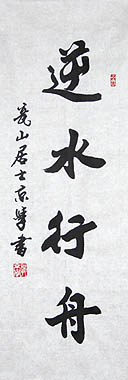 逆水行舟
瓮山居士京生书